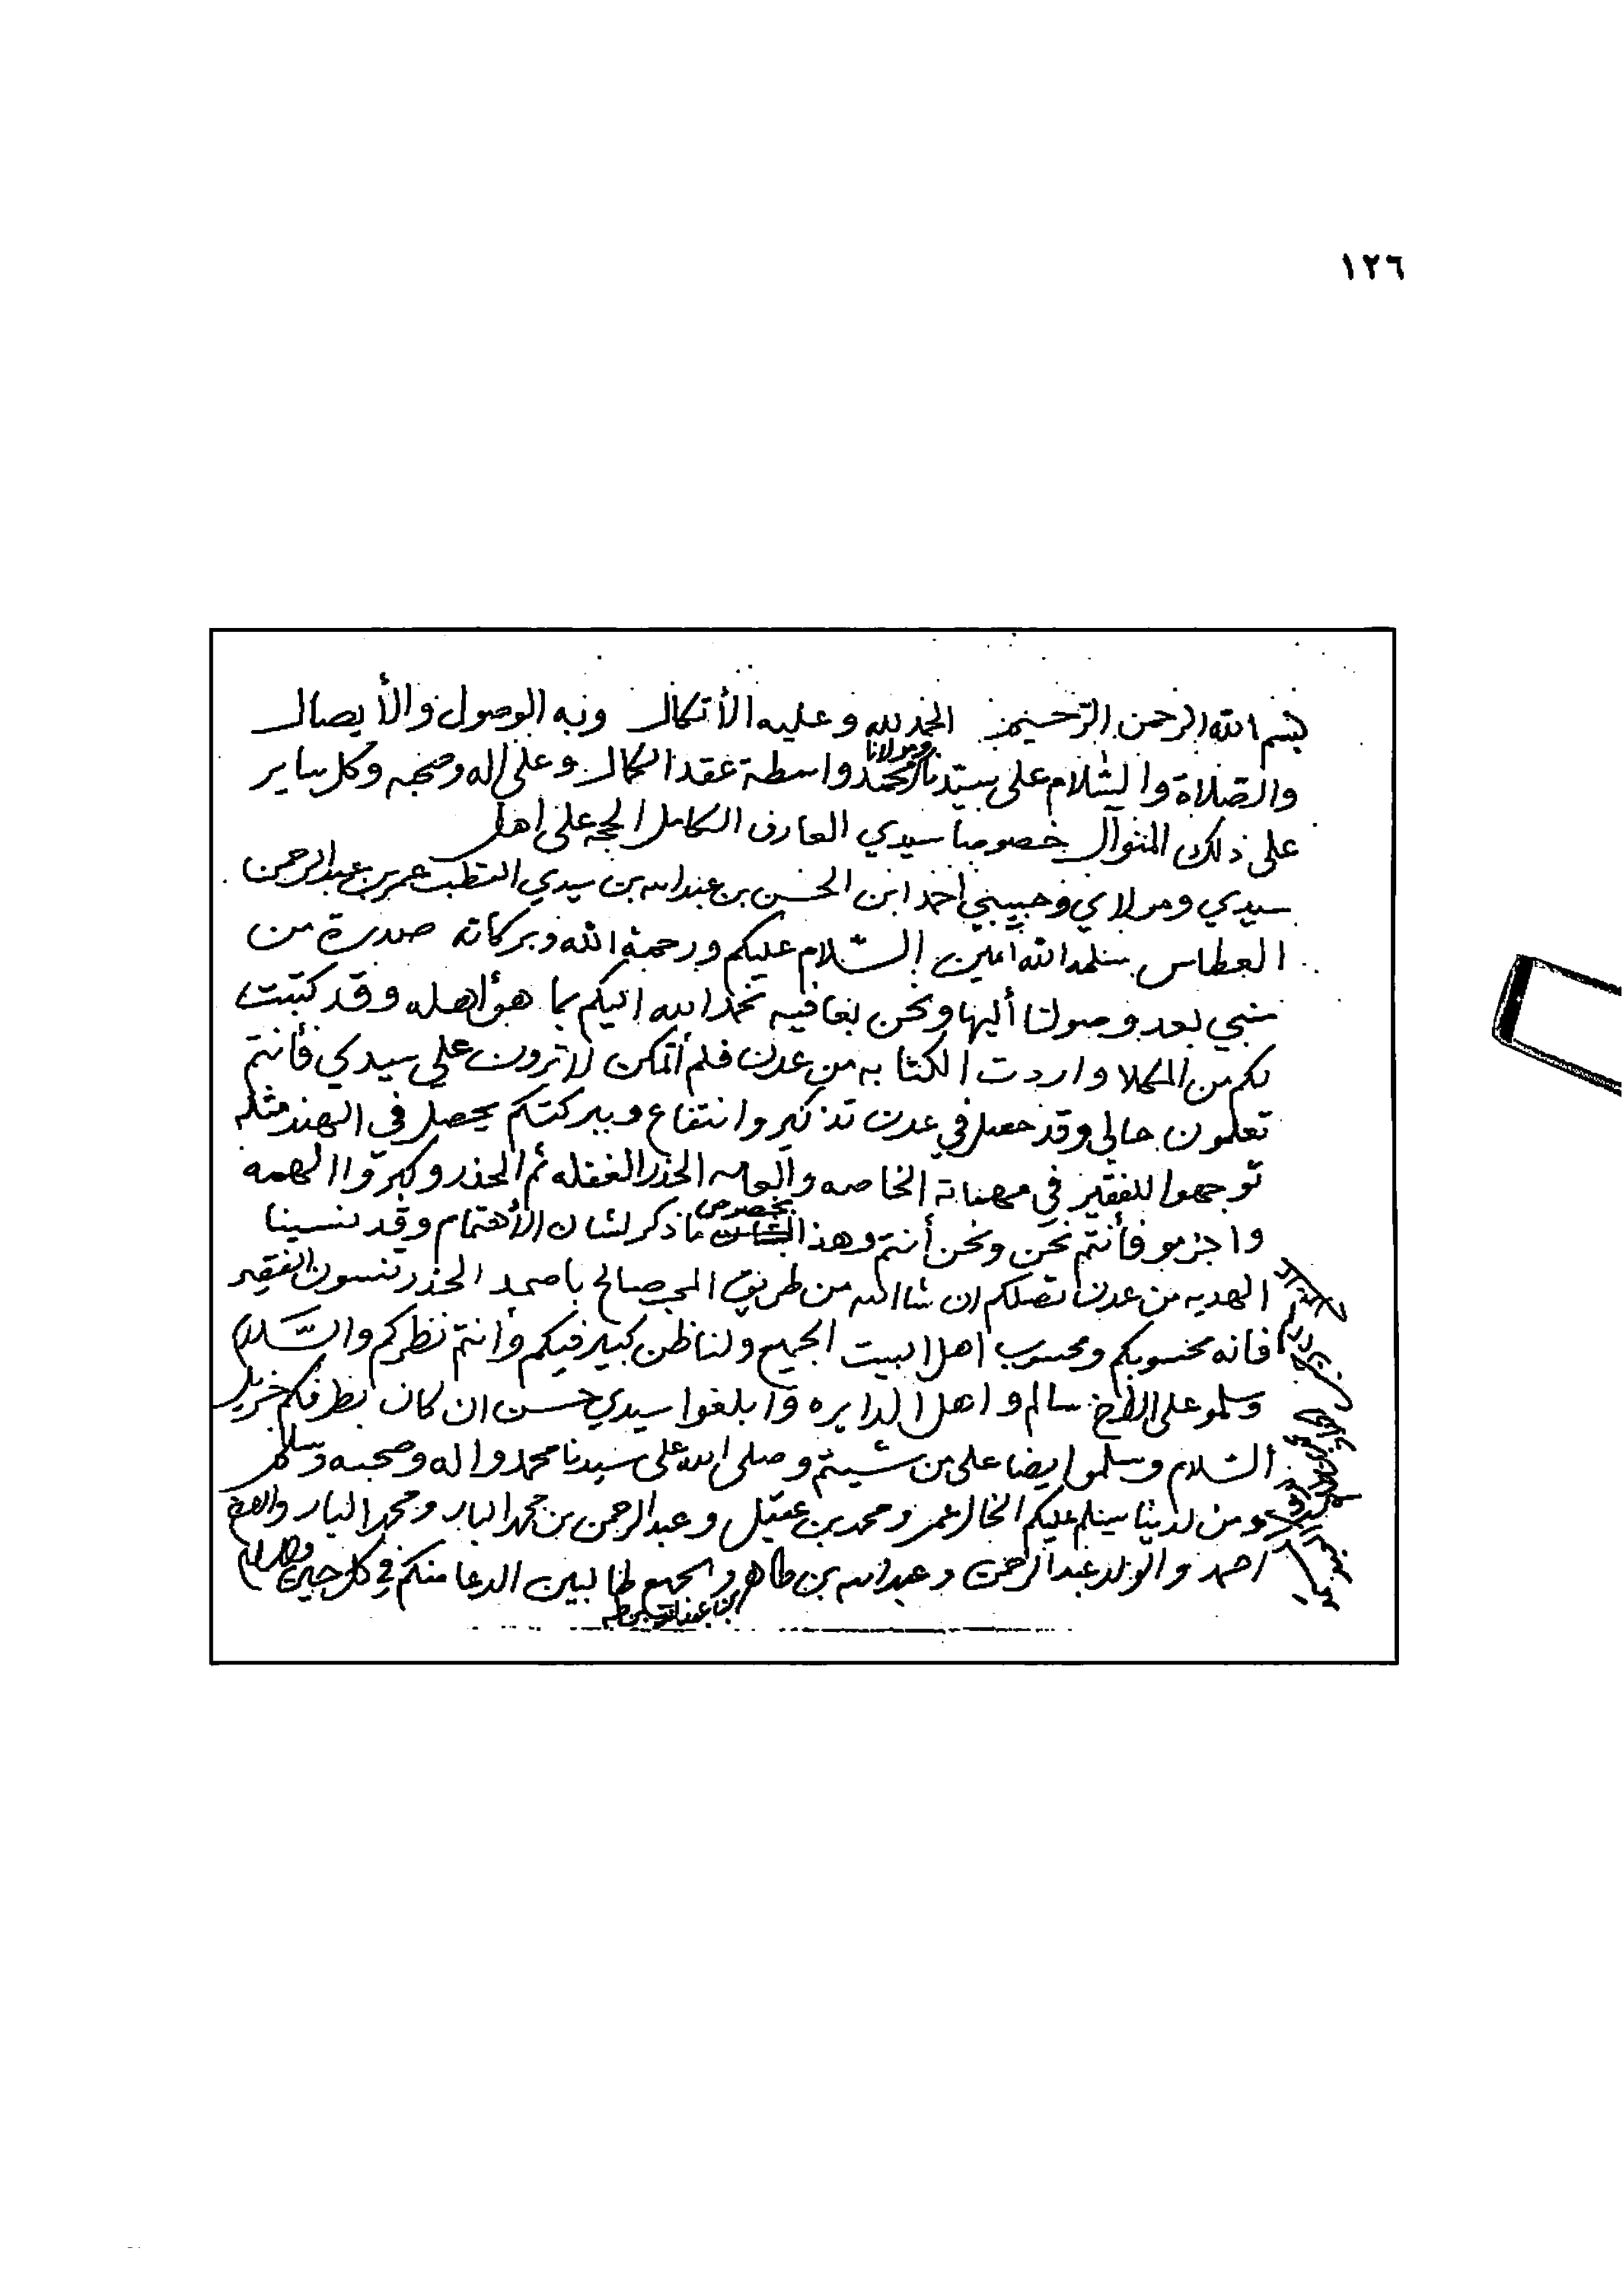 ١٢٦
بسم الله الرحمن الرحيم الحمد لله وعليه الأتكال وبه الوصول والأيصال
والصلاة والسلام على سيدنا ومولانا محمد واسطة عقد الكمال وعلى اله وصحبه وكل ساير
على ذلك المنوال خصوصا سيدي العارف الكامل الحجه على اهل
سيدي ومولاي وحبيبي احمد ابن الحسن بن عبدالله بن سيدي القطب عمر بن عبدالرحمن
العطاس سلمه الله امين السلام عليكم ورحمة الله وبركاته صدرة من
منبي بعد وصولنا أليها ونحن بعافيه نحمد الله اليكم بما هو أهله وقد كتبت
لكم من المكلا واردت الكتابه من عدن فلم أتمكن لاترون علي سيدي فأنتم
تعلمون حالي وقد حصل في عدن تذكير وانتفاع وببركتكم يحصل في الهند مثله
توجهوا للفقير في مهماته الخاصه والعامه الحذر الغفله ثم الحذر وكبروا الهمه
واجزمو فأنتم نحن ونحن أنتم وهذا بخصوص ماذكر لشان الأهتمام وقد نسينا
الهديه من عدن تصلكم ان شاالله من طريق المحب صالح باصمد الحذر تنسون الفقير
فانه محسوبكم ومحسوب اهل البيت الجميع ولنا ظن كبير فيكم وأنتم نظركم والسلام
وسلمو على الأخ سالم واهل الدايره وأبلغوا سيدي حسن ان كان بطرفكم جزيل
السلام وسلموا ايضا على من شيتم وصلى الله على سيدنا محمد واله وصحبه وسلم
ومن لدينا يسلم عليكم الخال عمر ومحمد بن عقيل وعبدالرحمن بن محمد البار ومحمد البار
احمد والولد عبدالرحمن وعبدالله بن طاهر والجميع طالبين الدعا منكم في كل حين